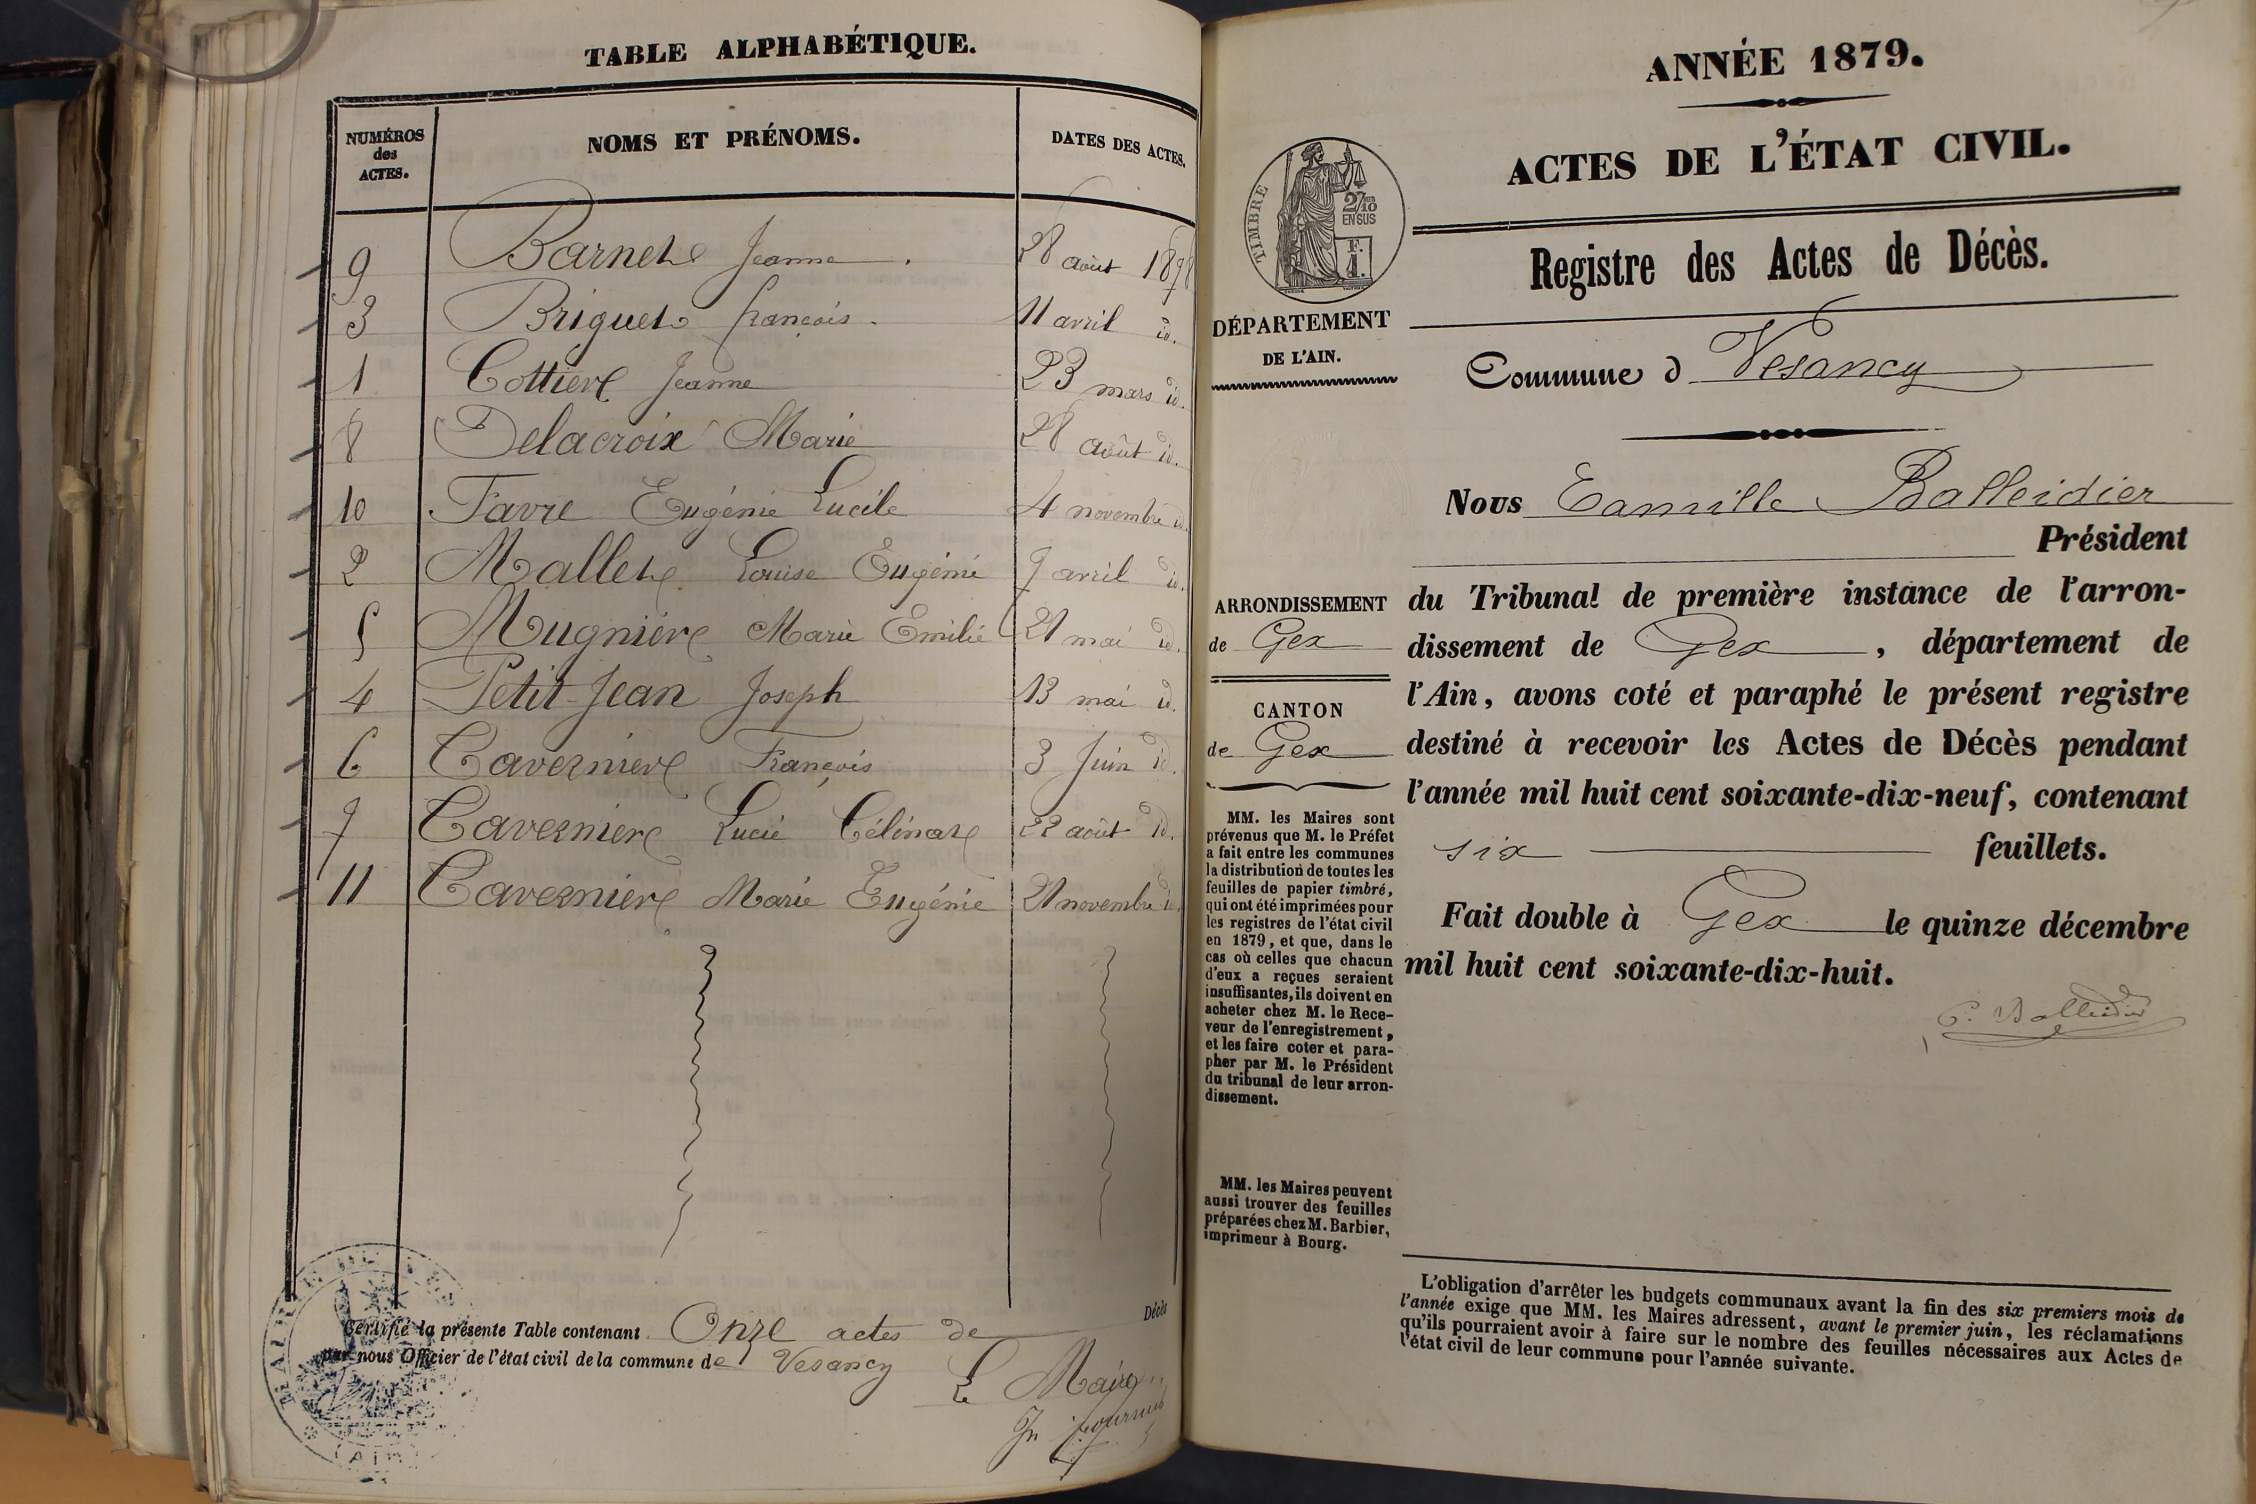 TABLE ALPHABÉTIQUE.
NUMÉROS des ACTES. NOMS ET PRÉNOMS. DATES DES ACTES.
9 Barnet Jeanne 28 août 1878
3 Briquet françois 11 avril id.
1 Cottier Jeanne 23 mars id.
8 Delacroix Marie 28 août id.
10 Favre Eugénie Lucile 4 novembre id.
2 Mallet Louise Eugénie 7 avril id.
5 Mugnier Marie Emilie 21 mai id.
4 Petit-Jean Joseph 13 mai id.
6 Tavernier François 3 Juin id.
7 Tavernier Lucie 22 août id.
11 Tavernier Marie Eugénie 21 novembre id.
Certifié la présente Table contenant Onze actes de Décès
par nous Officier de l'état civil de la commune de Vesancy
Le Maire
MAIRIE DE
(AIN)
ANNÉE 1879.
ACTES DE L'ÉTAT CIVIL.
TIMBRE
2/10
EN SUS
Registre des Actes de Décès.
DÉPARTEMENT
DE L'AIN.
Commune d Vesancy
Nous Camille Balleidier
Président
du Tribunal de première instance de l'arron-
dissement de Gex, département de
l'Ain, avons coté et paraphé le présent registre
destiné à recevoir les Actes de Décès pendant
l'année mil huit cent soixante-dix-neuf, contenant
six feuillets.
Fait double à Gex le quinze décembre
mil huit cent soixante-dix-huit.
C. Balleidier
ARRONDISSEMENT
de Gex
CANTON
de Gex
MM. les Maires sont
prévenus que M. le Préfet
a fait entre les communes
la distribution de toutes les
feuilles de papier timbré,
qui ont été imprimées pour
les registres de l'état civil
en 1879, et que, dans le
cas où celles que chacun
d'eux a reçues seraient
insuffisantes, ils doivent en
acheter chez M. le Rece-
veur de l'enregistrement,
et les faire coter et para-
pher par M. le Président
du tribunal de leur arron-
dissement.
MM. les Maires peuvent
aussi trouver des feuilles
préparées chez M. Barbier,
imprimeur à Bourg.
L'obligation d'arrêter les budgets communaux avant la fin des six premiers mois de
l'année exige que MM. les Maires adressent, avant le premier juin, les réclamations
qu'ils pourraient avoir à faire sur le nombre des feuilles nécessaires aux Actes de
l'état civil de leur commune pour l'année suivante.